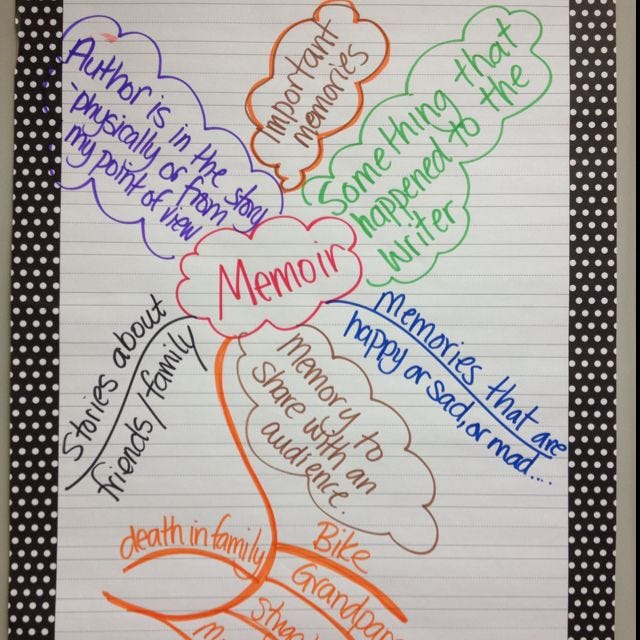 Author is in the story
-physically or from
my point of view
Important
memories
Something that
happened to the
Writer
Memoir
Stories about
friends/family
Memories that are
happy or sad, or mad....
memory to
share with an
audience.
death in family
Bike